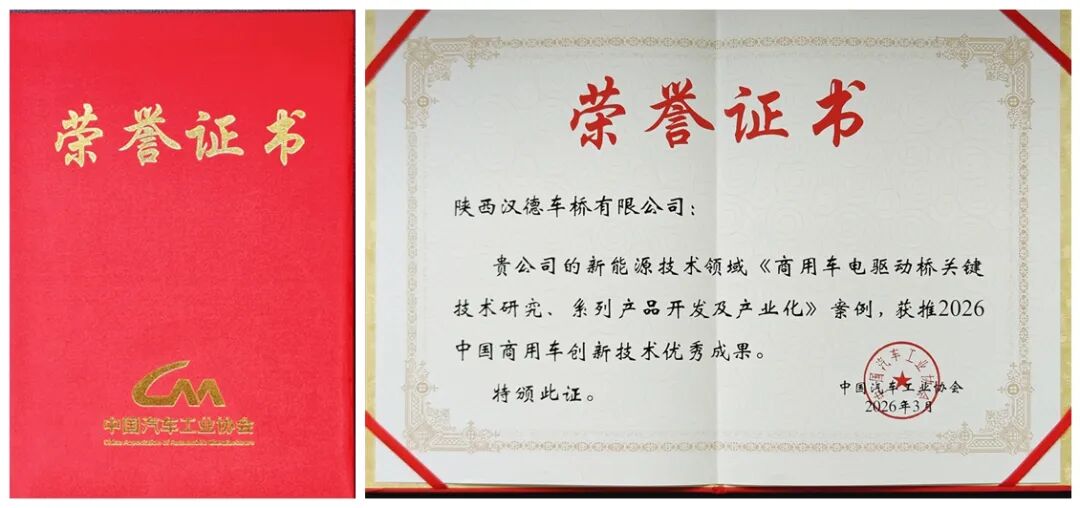 荣誉证书
中国汽车工业协会
China Association of Automobile Manufacturers
荣誉证书
陕西汉德车桥有限公司：
贵公司的新能源技术领域《商用车电驱动桥关键
技术研究、系列产品开发及产业化》案例，获推2026
中国商用车创新技术优秀成果。
特颁此证。
中国汽车工业协会
中国汽车工业协会
2026年3月